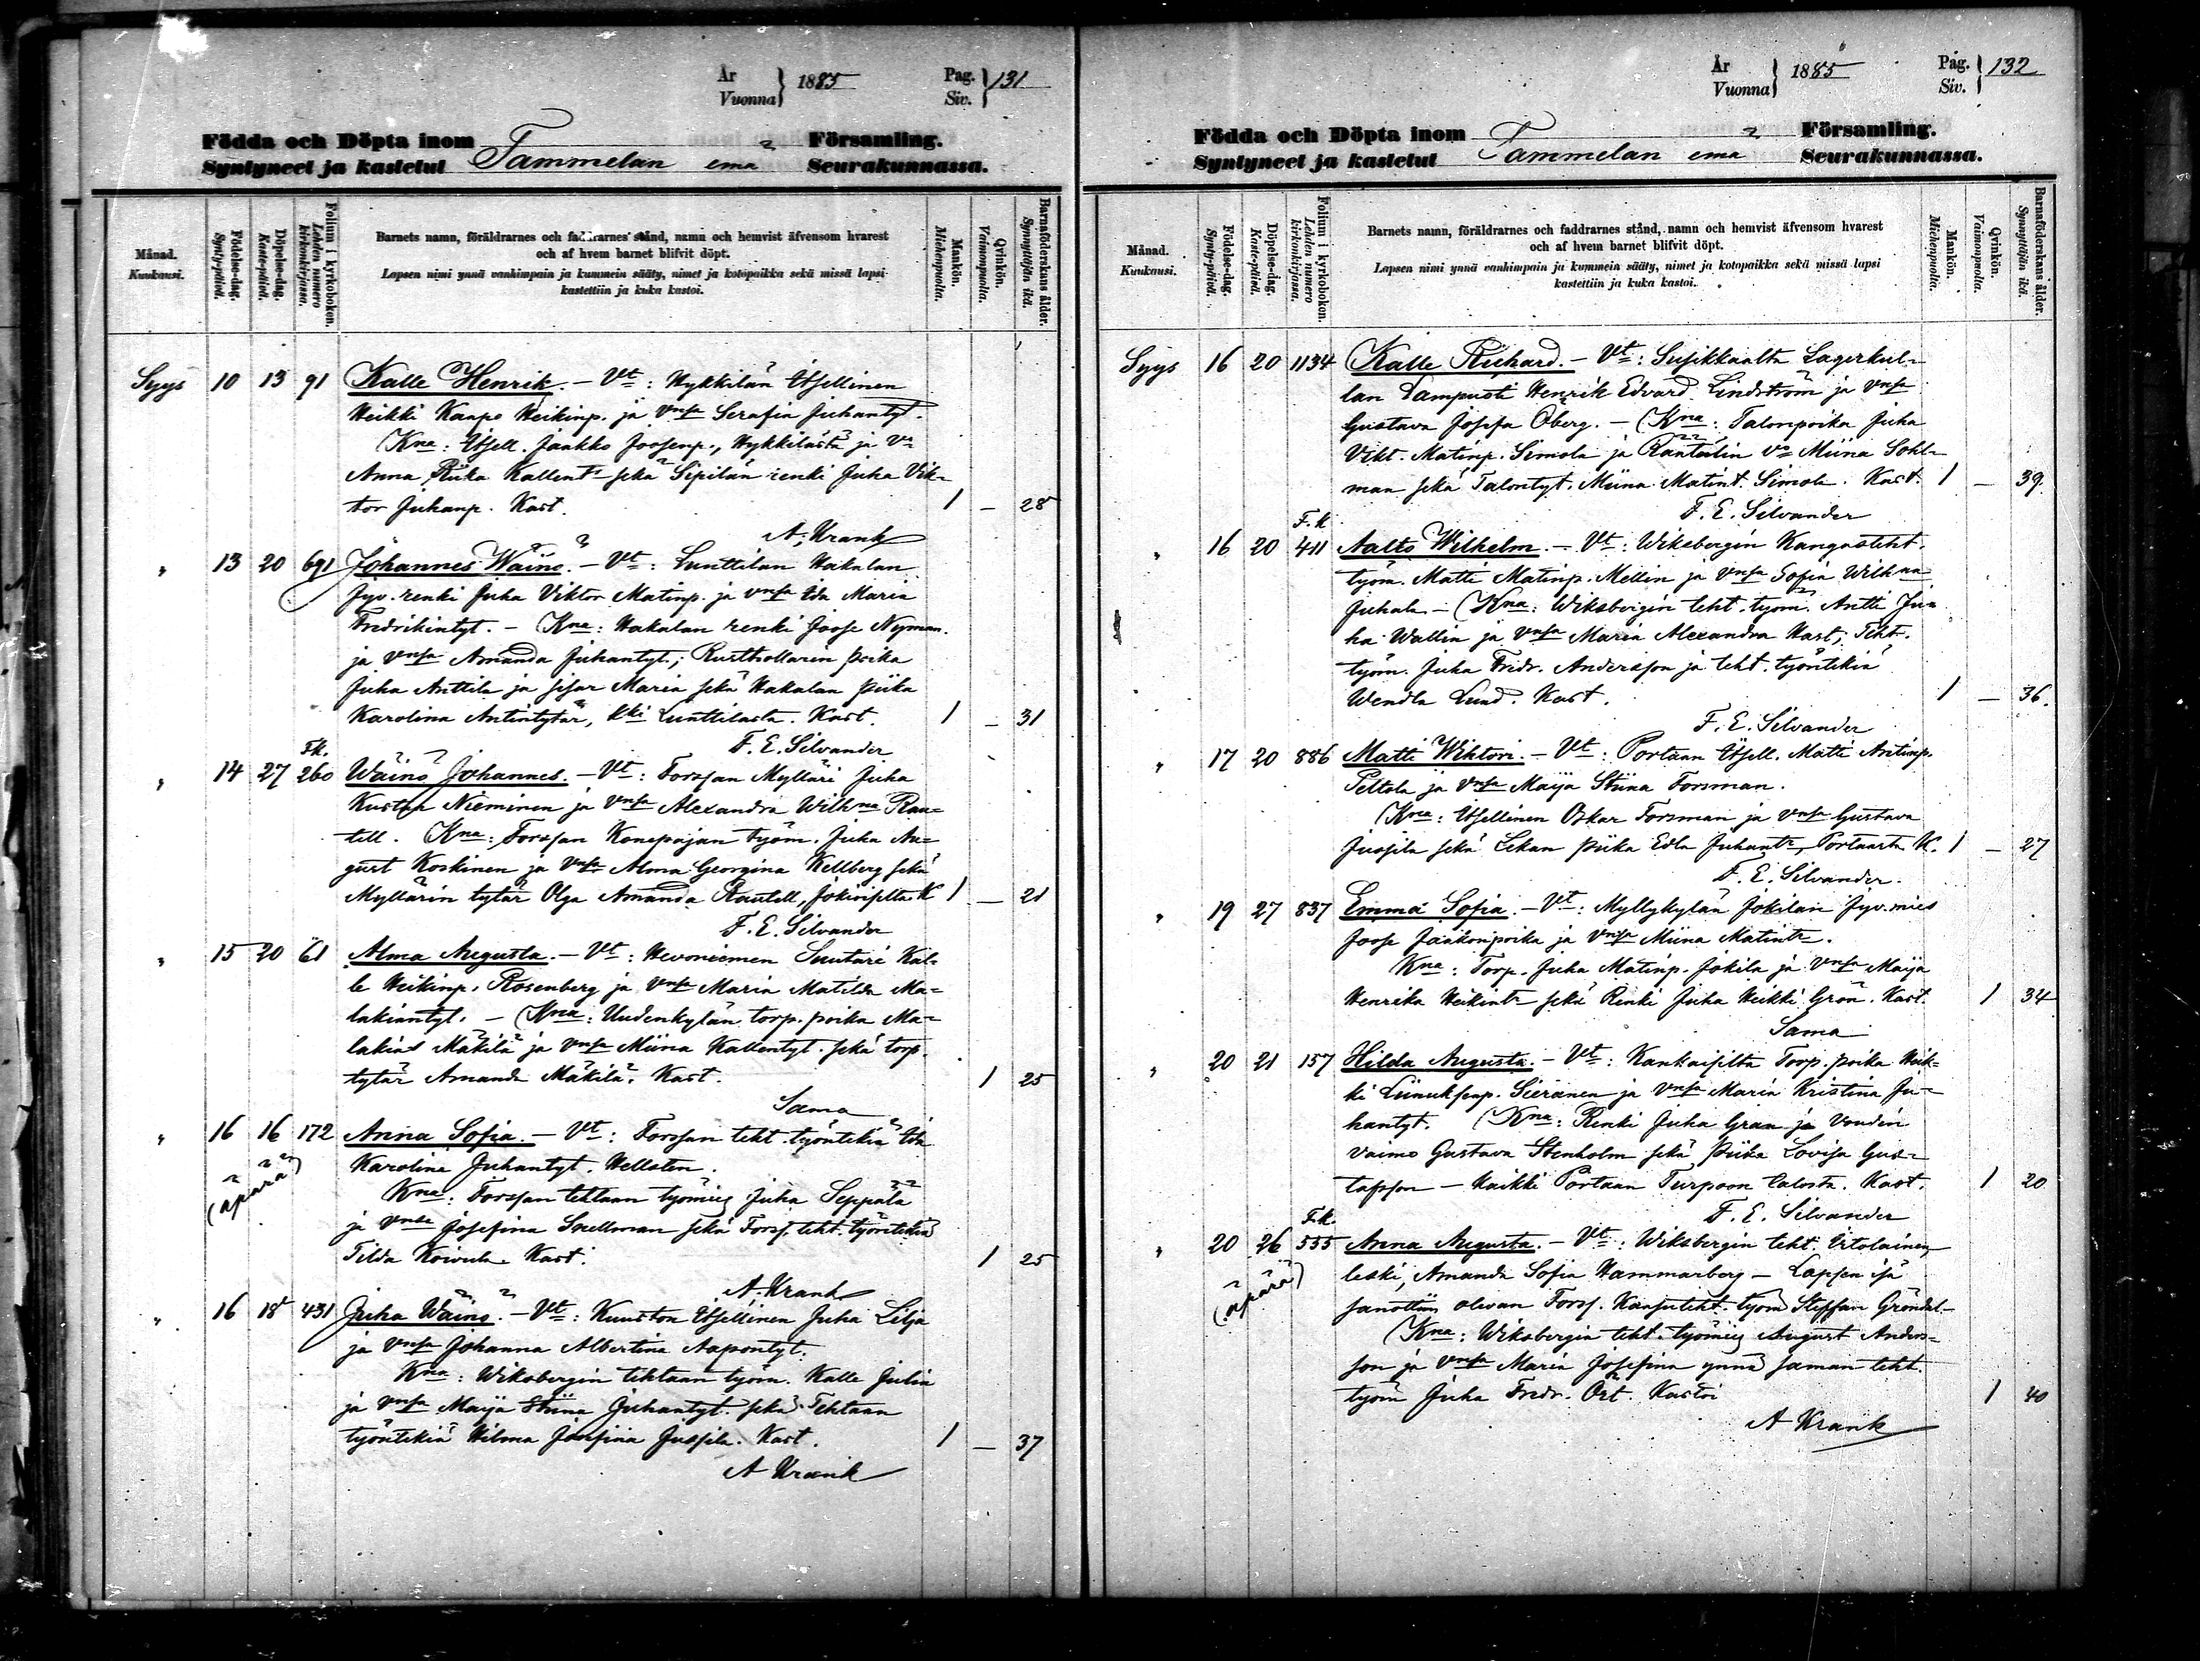 År
Vuonna } 1885
Pag.
Siv. } 131
Födda och Döpta inom
Syntyneet ja kastetut Tammelan emä Församling.
Seurakunnassa.
Månad.
Kuukausi.
Födelse-dag.
Synty-päivä.
Döpelse-dag.
Kaste-päivä.
Folium i kyrkoboken.
Lehden numero kirkonkirjassa.
Barnets namn, föräldrarnes och faddrarnes stånd, namn och hemvist äfvensom hvarest
och af hvem barnet blifvit döpt.
Lapsen nimi ynnä vanhimpain ja kummein sääty, nimet ja kotopaikka sekä missä lapsi
kastettiin ja kuka kastoi.
Mankön.
Miehenpuolia.
Qvinkön.
Vaimonpuolia.
Barnaföderskans ålder.
Synnyttäjän ikä.
Syys 10 13 91 Kalle Henrik. – Vt: Hykkilän Itsellinen
Heikki Kaape Heikinp. ja vnsa Serafia Juhantyt.
Kna: Itsell. Jaakko Joosenp., Hykkilästä ja vo
Anna Riika Kallent. sekä Sipilän renki Juha Vik-
tor Juhanp. Kast. 1 – 28
A. Krank
" 13 20 691 Johannes Wäinö. – Vt: Lunttilan Hakalan
Jyv. renki Juha Viktor Matinp. ja vnsa Ida Maria
Fredrikintyt. – Kna: Hakalan renki Joose Nyman.
ja vnsa Amanda Juhantyt.; Rusthollarin poika
Juha Anttila ja sisar Maria sekä Hakalan piika
Karolina Antintytär, kki Lunttilasta. Kast. 1 – 31
F. E. Silvander
Fk.
" 14 27 260 Wäinö Johannes. – Vt: Forssan Mylläri Juha
Kustaa Nieminen ja vnsa Alexandra Wilhna Rau-
tell. Kna: Forssan Konepajan työm. Juha Au-
gust Koskinen ja vnsa Alma Georgina Kellberg sekä
Myllärin tytär Olga Amanda Rautell, Jokioisilta K 1 – 21
F. E. Silvander
" 15 20 61 Alma Augusta. – Vt: Hevoniemen Suutari Kal-
le Heikinp. Rosenberg ja vnsa Maria Matilda Ma-
lakiantyt. – Kna: Uudenkylän torp. poika Ma-
lakias Mäkilä ja vnsa Miina Kallentyt. sekä torp.
tytär Amanda Mäkilä. Kast. 1 25
Sama
" 16 16 172 Anna Sofia. – Vt: Forssan teht. työntekiä Ida
(äpärä) Karolina Juhantyt. Hellsten.
Kna: Forssan tehtaan työmies Juha Seppälä
ja vnsa Josefina Snellman sekä Forss. teht. työntekiä
Tilda Koivula. Kast. 1 25
A. Krank
" 16 18 431 Juha Wäinö. – Vt: Kuuston Itsellinen Juha Lilja
ja vnsa Johanna Albertina Aapontyt.
Kna: Wiksbergin tehtaan työm. Kalle Julin
ja vnsa Maija Stiina Juhantyt. sekä Tehtaan
työntekiä Hilma Josefina Jussila. Kast. 1 – 37
A Krank
År
Vuonna } 1885
Pag.
Siv. } 132
Födda och Döpta inom
Syntyneet ja kastetut Tammelan emä Församling.
Seurakunnassa.
Månad.
Kuukausi.
Födelse-dag.
Synty-päivä.
Döpelse-dag.
Kaste-päivä.
Folium i kyrkoboken.
Lehden numero kirkonkirjassa.
Barnets namn, föräldrarnes och faddrarnes stånd, namn och hemvist äfvensom hvarest
och af hvem barnet blifvit döpt.
Lapsen nimi ynnä vanhimpain ja kummein sääty, nimet ja kotopaikka sekä missä lapsi
kastettiin ja kuka kastoi.
Mankön.
Miehenpuolia.
Qvinkön.
Vaimonpuolia.
Barnaföderskans ålder.
Synnyttäjän ikä.
Syys 16 20 1134 Kalle Richard. – Vt: Susikkaalta Lagerkul-
lan Lampuoti Henrik Edvard Lindström ja vnsa
Gustava Josefa Öberg. – Kna: Talonpoika Juha
Vikt. Matinp. Simola ja Räntälin vo Miina Sohl-
man sekä Talontyt. Miina Matint. Simola. Kast. 1 – 39.
F. E. Silvander
F.k
" 16 20 411 Aalto Wilhelm. – Vt: Wiksbergin Kangasteht.
työm. Matti Matinp. Mellin ja vnsa Sofia Wilhna
Juhala – Kna: Wiksbergin teht. työm. Antti Ju-
ha Wallin ja vnsa Maria Alexandra Kast, Teht.
työm. Juha Fredr. Andersson ja teht. työntekiä
Wendla Lund. Kast. 1 – 36.
F. E. Silvander
" 17 20 886 Matti Wiktori. – Vt: Portaan Itsell. Matti Antinp.
Peltola ja vnsa Maija Stiina Forsman.
Kna: Itsellinen Oskar Forsman ja vnsa Gustava
Jussila sekä Lekan piika Edla Juhantr, Portaasta K. 1 – 27
F. E. Silvander.
" 19 27 837 Emma Sofia. – Vt: Myllykylän Jokilan Jyv. mies
Joose Jaakonpoika ja vnsa Miina Matintr.
Kna: Torp. Juha Matinp. Jokila ja vnsa Maija
Henrika Heikintr sekä Renki Juha Heikki Grön. Kast. 1 34
Sama
" 20 21 157 Hilda Augusta. – Vt: Kankaisilta Torp. poika Heik-
ki Liinuksenp. Sieranen ja vnsa Maria Kristina Ju-
hantyt. Kna: Renki Juha Gran ja Voudin
vaimo Gustava Stenholm sekä Piika Lovisa Gus-
tafsson – Kaikki Portaan Turpoon talosta. Kast. 1 20
F. E. Silvander
F.k.
" 20 26 555 Anna Augusta. – Vt: Wiksbergin teht. Irtolainen
(äpärä) leski, Amanda Sofia Hammarberg – Lapsen isä
sanottiin olevan Forss. Kansateht. työm Steffan Gröndal –
Kna: Wiksbergin teht. työmies August Anders-
son ja vnsa Maria Josefina ynnä saman teht.
työm Juha Fredr. Ört. Kastoi 1 40
A Krank